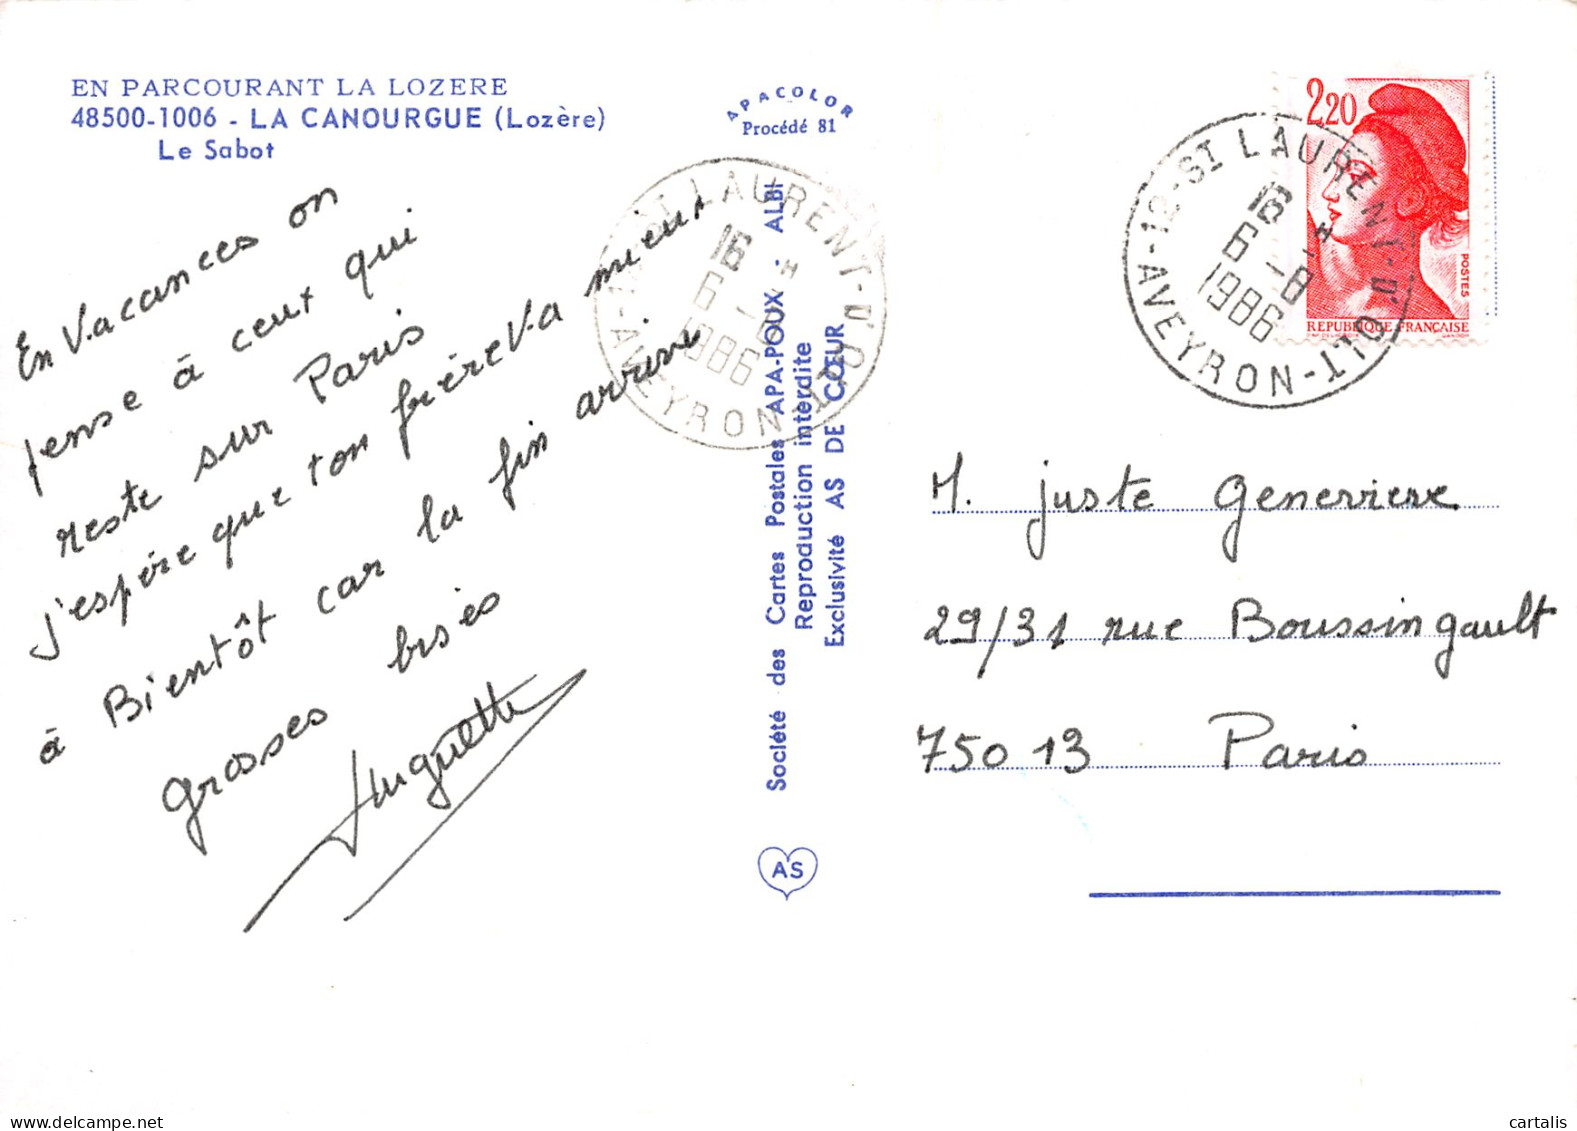 EN PARCOURANT LA LOZERE
48500-1006 - LA CANOURGUE (Lozère)
Le Sabot
APACOLOR
Procédé 81
En Vacances on
pense à ceux qui
reste sur Paris
j'espère que ton frère va mieux
à Bientôt car la fin arrive.
grosses bises
Huguette
Société des Cartes Postales APA-POUX - ALBI
Reproduction interdite
Exclusivité AS DE CŒUR
AS
12-ST LAURENT-D'OLT
16 H
6-8
1986
AVEYRON
2,20
POSTES
REPUBLIQUE FRANÇAISE
12-ST LAURENT-D'OLT
16 H
6-8
1986
AVEYRON
M. juste Genevieve
29/31 rue Boussingault
75013 Paris
cartalis